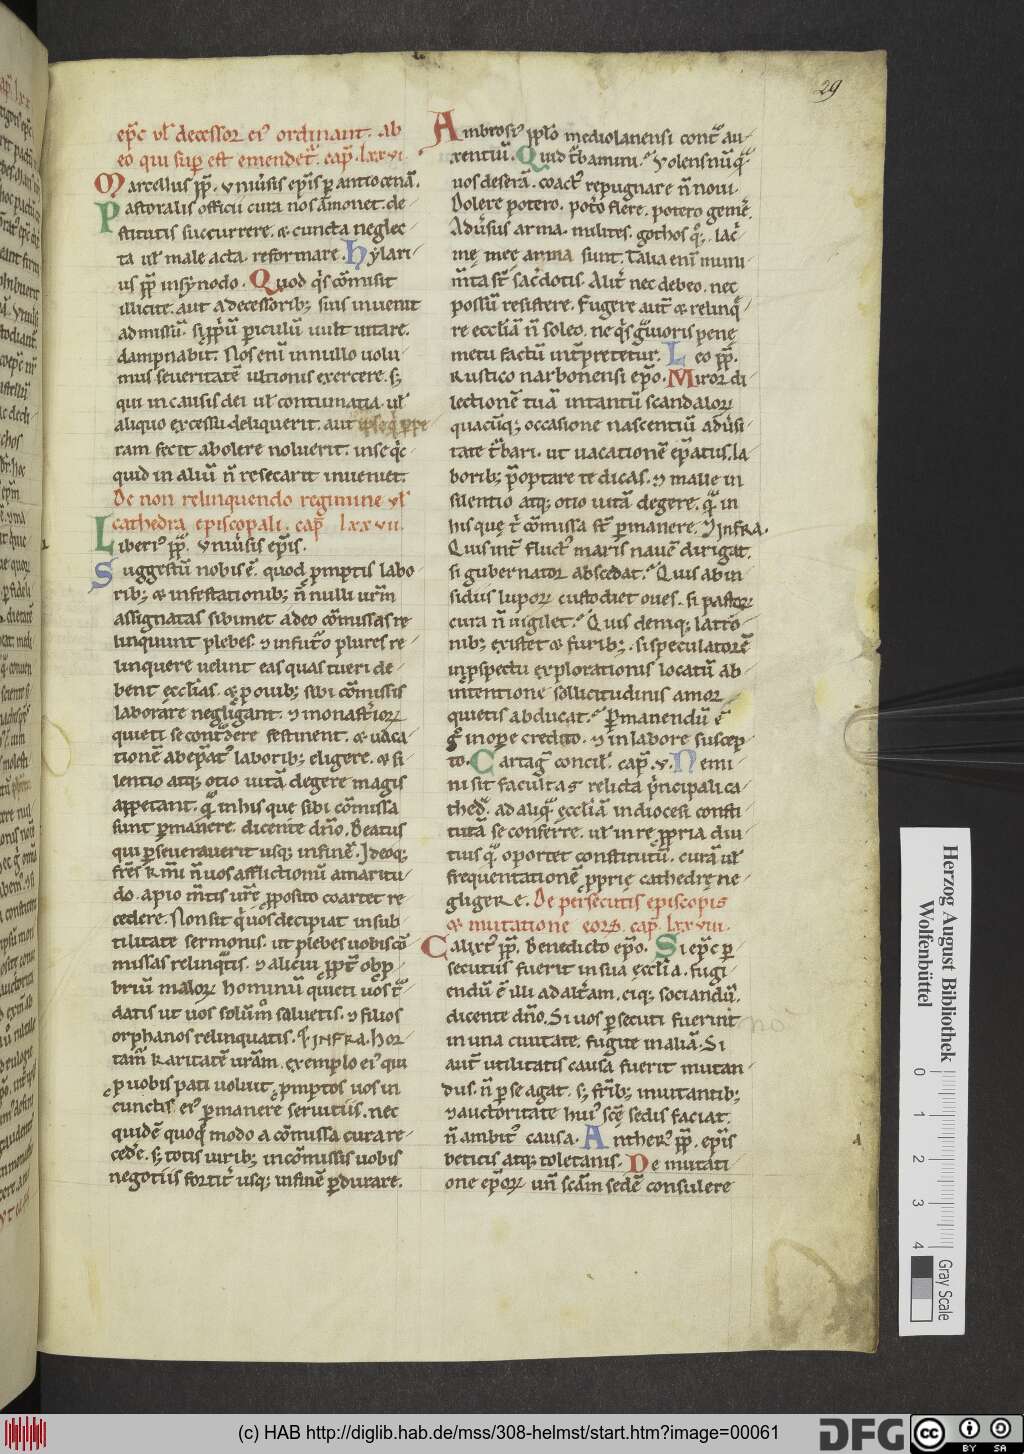 29
ep̄c ul̄ decessor ei᷒ ordinant. ab
eo qui sup̄ est emendet᷑. cap̄. lxxvi.
Marcellus pp̄. uniu̾sis ep̄is p̄ antiocenā.
Pastoralis officii cura nos āmonet. de-
stitutis succurrere. & cuncta neglec-
ta ul̄ male acta reformare. Hylari-
us pp̄ in synodo. Quod q̇s cōmisit
illicite. aut a decessorib; suis inuenit
admissū. si p̱p̄u periculū uult uitare.
dampnabit. Nos enī in nullo uolu-
mus seueritatē ultionis exercere. s;
qui in causis dei ul̄ contumatia. ul̄
aliquo excessu deliquerit. aut
ram fecit abolere noluerit. in se q̇c-
quid in aliū n̄ resecarit inueniet.
De non relinquendo regimine ul̄
cathedra episcopali. cap̄ lxxvii.
Liberi᷒ pp̄. uniu̾sis ep̄is.
Suggestū nobis ē. quod p̱mptis labo-
rib; & infestationib; n̄ nulli ur̄m
assignatas sibimet adeo cōmissas re-
linquunt plebes. ⁊ in fut̾o plures re-
linquere uelint eas quas tueri de-
bent ęccl̄ias. & p̱ ouib; sibi cōmissis
laborare negligant. ⁊ monast̾iorꝝ
quieti se cont̾dere festinent. & uaca-
tionē ab ep̄at᷒ laborib; eligere. & si-
lentio atq; otio uitā degere magis
appetant. q̄ in his que sibi cōmissa
sunt p̄manere. dicente dn̄o. Beatus
qui p̄seuerauerit usq; in finē. Ideoq;
fr̄es k̄mi n̄ uos afflictionū amaritu-
do. a pio m̄tis ur̄e p̱posito coartet re-
cedere. Non sit q̇ uos decipiat in sub-
tilitate sermonis. ut plebes uobis cō-
missas relinq̄tis. ⁊ alicui p̱pt̄ ob p̱-
briū malorꝝ hominū quieti uos t̾-
datis ut uos solum̊ saluetis. ⁊ filios
orphanos relinquatis. ⁊ INFRA. Hor-
tam᷒ karitatē ur̄am. exemplo ei᷒ qui
p̱ uobis pati uoluit p̱mptos uos in
cunctis ei᷒ p̄manere seruitiis. nec
quidē quoq̊ modo a cōmissa cura re-
cede̾. s; totis uirib; in cōmissis uobis
negotiis fortit̾ usq; in finē p̄durare.
Ambrosi᷒ ip̄lo mediolanensi cont̾ au-
xentiū. Quid t̾bamini. Volens nūq̄
uos deserā. coact᷒ repugnare n̄ noui.
Dolere potero. pot̾o flere. potero geme̾.
Adu̾sus arma. milites. gothos q̊;. lac̾-
me mee arma sunt. Talia enī muni-
m̄ta st̄ sac̾dotis. Alit̾ nec debeo. nec
possū resistere. Fugere aut̄ & relinq̾-
re eccl̄iā n̄ soleo. ne q̇s g̾uioris penę
metu factū int̾pretetur. Leo pp̄.
Rustico narbonensi ep̄o. Miror di-
lectionē tuā in tantū scandalorꝝ
quacūq; occasione nascentiū adu̾si-
tate t̾bari. ut uacationē ep̄atus. la-
borib; p̄optare te dicas. ⁊ malle in
silentio atq; otio uitā degere. q̄ in
his quę t̾ cōmissa st̄ p̄manere. ⁊ INFRA.
Quis int̾ fluct᷒ maris nauē dirigat.
si gubernator abscedat. Quis ab in-
sidiis luporꝝ custodiet oues. si pastorꝝ
cura n̄ uigilet. Quis deniq; latro-
nib; existet & furib;. si speculatorē
in p̱spectu explorationis locatū ab
intentione sollicitudinis amor
quietis abducat. P̄manendū ē
g̊ in op̄e credito. ⁊ in labore suscep-
to. Cartag̾ concil̄. cap̄. v. Nemi-
ni sit facultas relicta p̾ncipali ca-
thed̾. ad aliq̄ ęccl̄iā in diocesi consti-
tutā se conferre. ul̄ in rę p̱pria diu-
tius q̄ oportet constitutū. curā ul̄
frequentationē p̱prię cathedrę ne-
gligere. De persecutis episcopis
& mutatione eorꝝ. cap̄. lxxviii.
Calixt᷒ pp̄. Benedicto ep̄o. Si ep̄c p̄-
secutus fuerit in sua eccl̄ia. fugi-
endū ē illi ad alt̾am. eiq; sociandū.
dicente dn̄o. Si uos p̄secuti fuerint
in una ciuitate. fugite in aliā. Si
aut̄ utilitatis causa fuerit mutan-
dus. n̄ p̄ se agat. s; fr̄ib; inuitantib;
⁊ auctoritate hui᷒ scē sedis faciat.
n̄ ambit᷒ causa. Anther᷒ pp̄. ep̄is
beticis atq; toletanis. De mutati-
one ep̄orꝝ un̄ scām sedē consulere
Herzog August Bibliothek
Wolfenbüttel
0 1 2 3 4
Gray Scale
(c) HAB http://diglib.hab.de/mss/308-helmst/start.htm?image=00061
DFG
cc BY SA